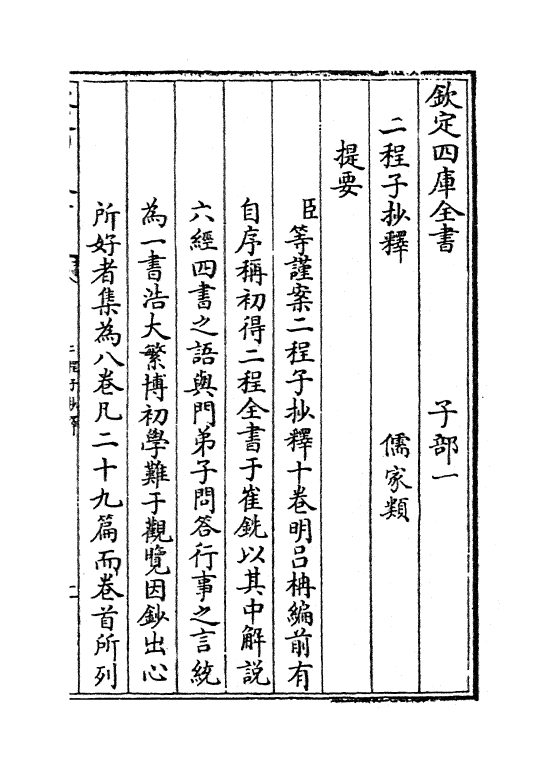 欽定四庫全書　子部一
二程子抄釋　儒家類
提要
臣等謹案二程子抄釋十卷明呂柟編前有
自序稱初得二程全書于崔銑以其中解說
六經四書之語與門弟子問答行事之言統
為一書浩大繁博初學難于觀覽因鈔出心
所好者集為八卷凡二十九篇而卷首所列